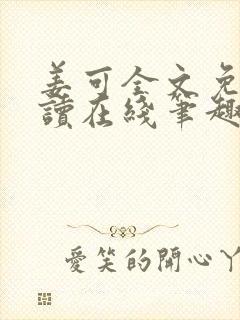 姜可全文免
讀在綫筆趣
愛笑的開心丫